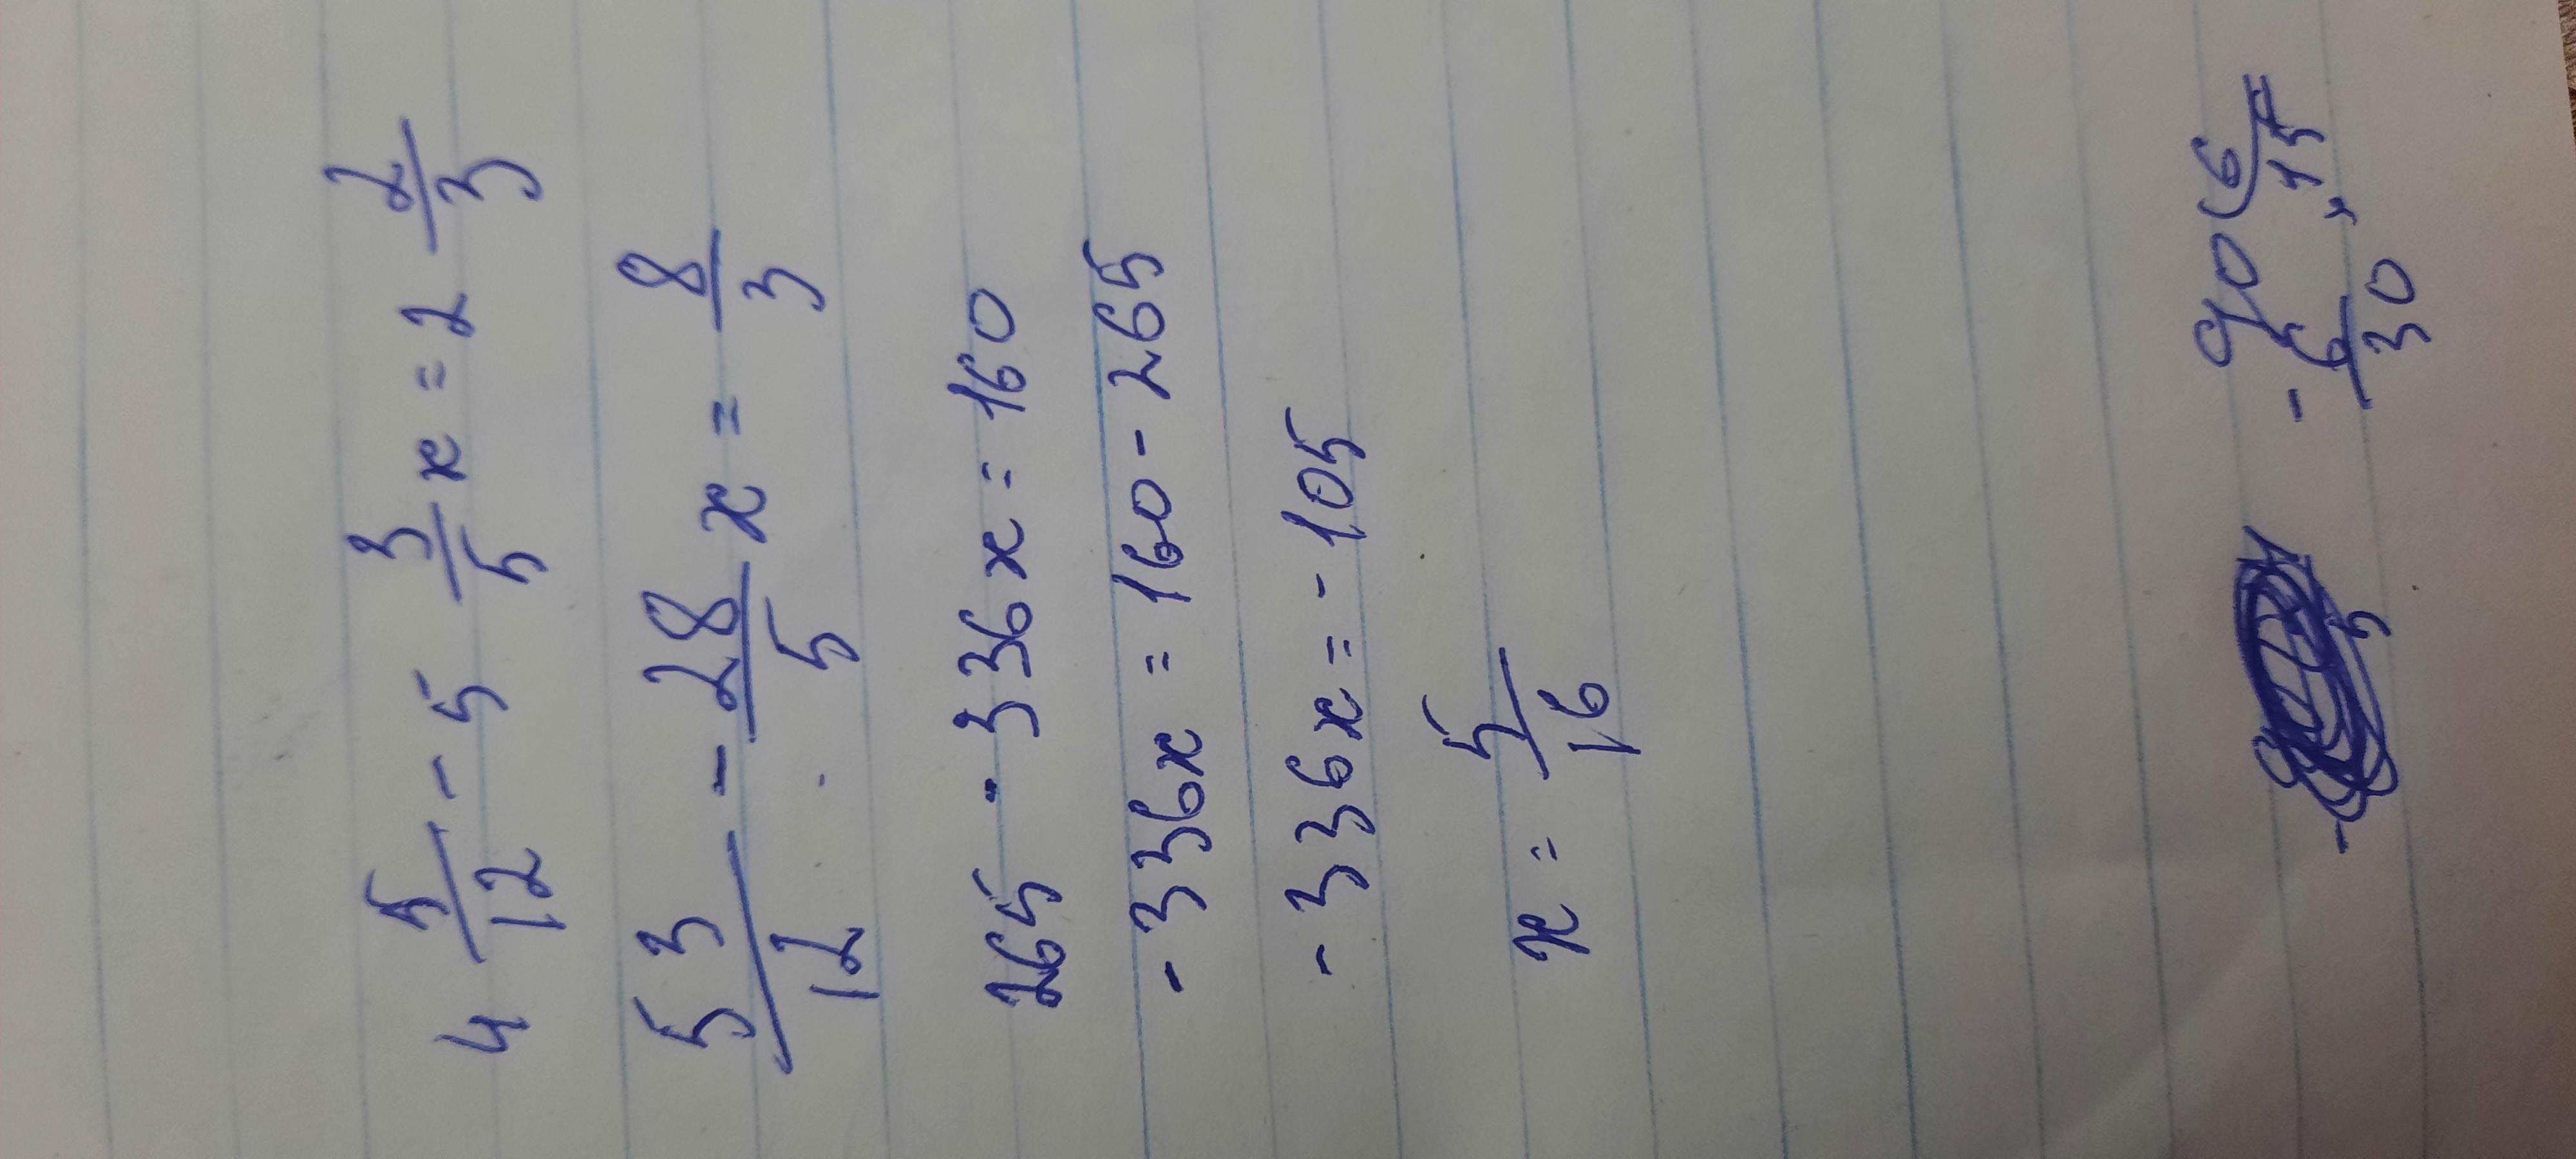 4 5/12 - 5 3/5 x = 2 2/3
53/12 - 28/5 x = 8/3
265 - 336x = 160
-336x = 160 - 265
-336x = -105
x = 5/16
90 6
- 6 15
30